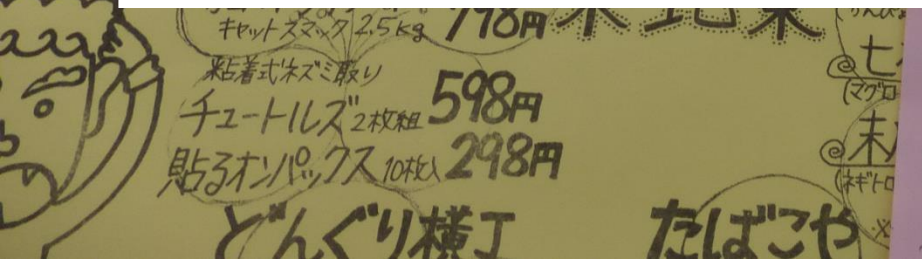 キャットスマック 2.5kg 798円
粘着式ネズミ取り
チュートルズ 2枚組 598円
貼るオンパックス 10枚入 298円
どんぐり横丁
たばこや
(マグロ
(ネギトロ
※